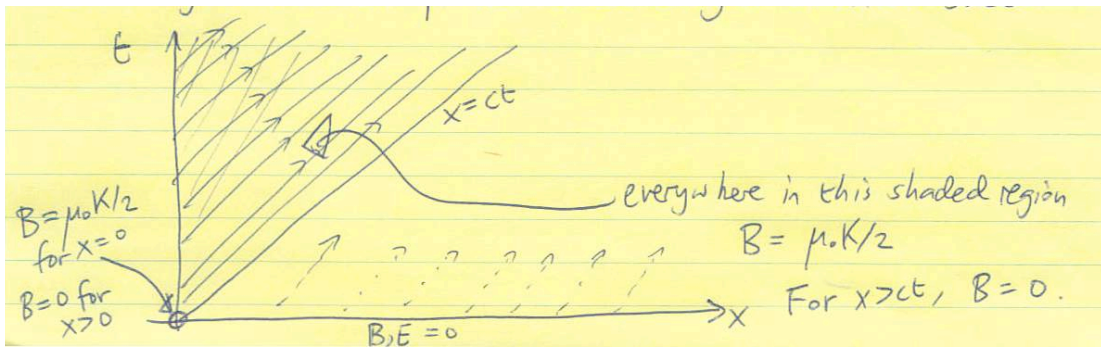 t
x=ct
everywhere in this shaded region
B=μ₀K/2
for x=0
B=μ₀K/2
B=0 for
x>0
For x>ct, B=0.
x
B,E=0